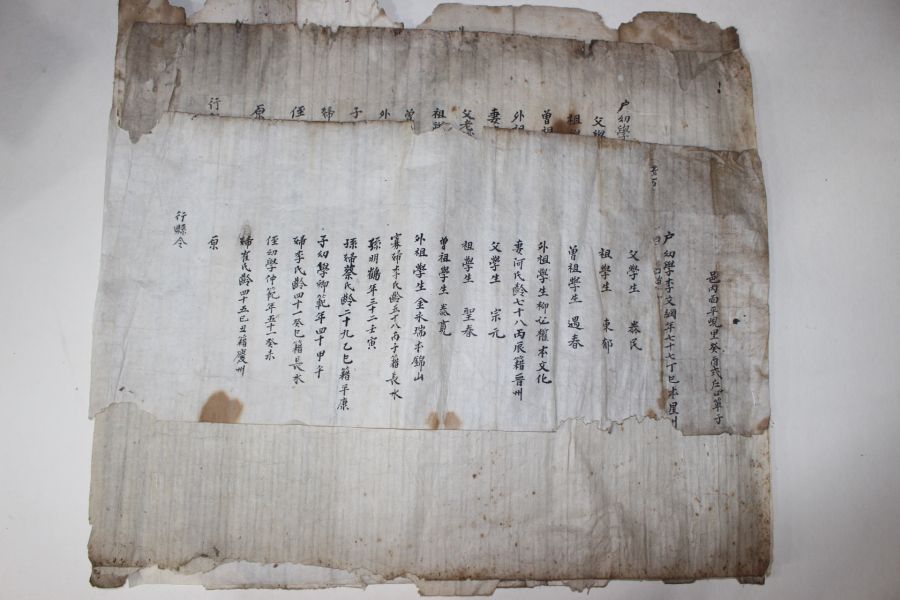 戶幼學
父學
祖
曾祖
外祖
妻
父
祖
曾
外
子
婦
侄
原
行
邑內面平
單子
戶幼學李文綱年七十七丁巳本星州
父學生 恭民
祖學生 東郁
曾祖學生 遇春
外祖學生柳 本文化
妻河氏齡七十八丙辰籍晉州
父學生 宗元
祖學生 聖春
曾祖學生 泰寬
外祖學生金 瑞本錦山
寡婦李氏齡五十八丙子籍長水
孫明鶴年三十二壬寅
孫婦蔡氏齡二十九乙巳籍平康
子幼學卿範年四十甲午
婦李氏齡四十一癸巳籍長水
侄幼學仲範年五十一癸未
婦崔氏齡四十五己丑籍慶州
原
行縣令